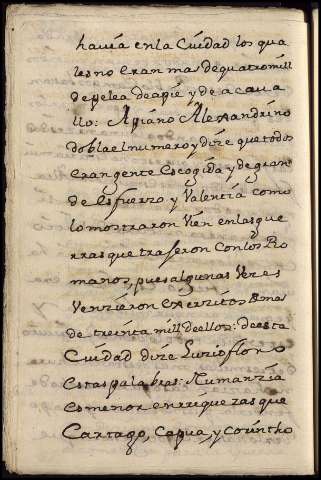 havia en la Ciudad los qua
les no eran mas de quatro mill
de pelea de apie y de acava
llo: Apiano Alexandrino
dobla el numero y dize que todos
eran gente Escogida y de gran
de esfuerzo y Valentia como
lo mostraron Vien en las gue
rras que traxeron con los Ro
manos, pues algunas Vezes
Venzieron exerzitos de mas
de treinta mill de ellos: de esta
Ciudad dize Luzio floro
estas palabras: Numanzia
es menor en rriquezas que
Cartago, Capua, y Corintho